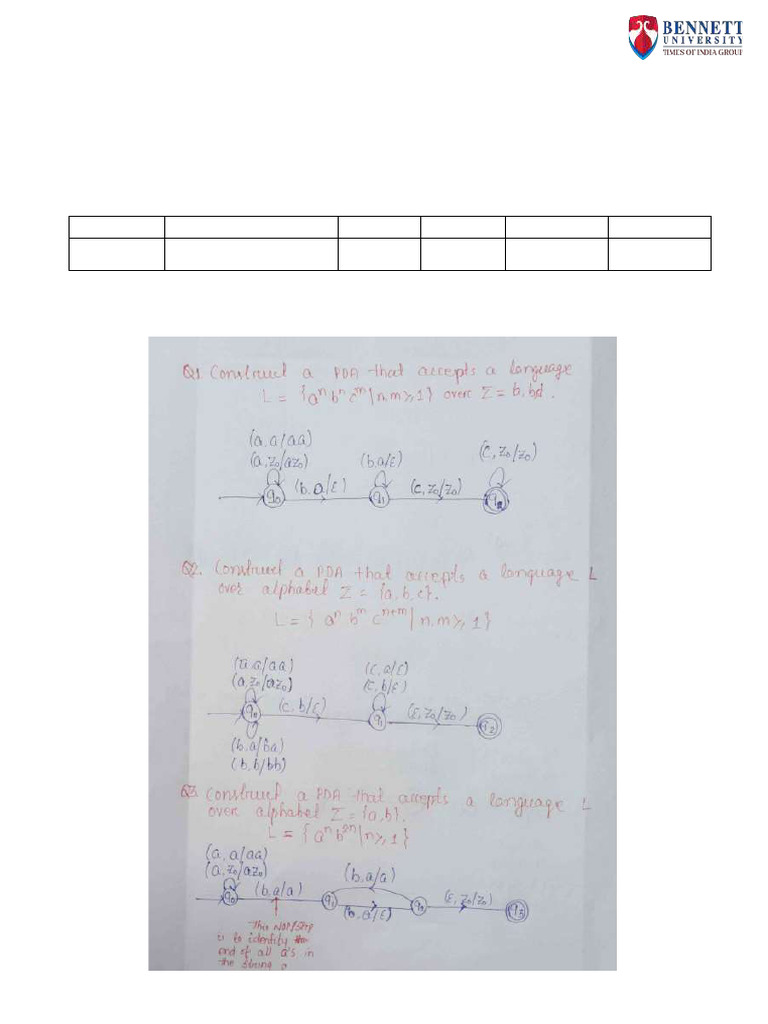 BENNETT
UNIVERSITY
TIMES OF INDIA GROUP
Q1. Construct a PDA that accepts a language
L = {aⁿ bⁿ cᵐ | n,m ≥ 1} over Σ = b, bd.
(a, a/aa)
(a, z₀/az₀)
(b, a/ε)
(c, z₀/z₀)
q₀ (b, a/ε) q₁ (c, z₀/z₀) q₂
Q2. Construct a PDA that accepts a language L
over alphabet Σ = {a, b, c}.
L = { aⁿ bᵐ cⁿ⁺ᵐ | n, m ≥ 1}
(a, a/aa)
(a, z₀/az₀)
(c, a/ε)
(c, b/ε)
q₀ (c, b/ε) q₁ (ε, z₀/z₀) q₂
(b, a/ba)
(b, b/bb)
Q3 Construct a PDA that accepts a language L
over alphabet Σ = {a, b}.
L = { aⁿ b²ⁿ | n ≥ 1}
(a, a/aa)
(a, z₀/az₀)
(b, a/a)
q₀ (b, a/a) q₁ (b, a/ε) q₂ (ε, z₀/z₀) q₃
This step
is to identify the
end of all a's in
the string